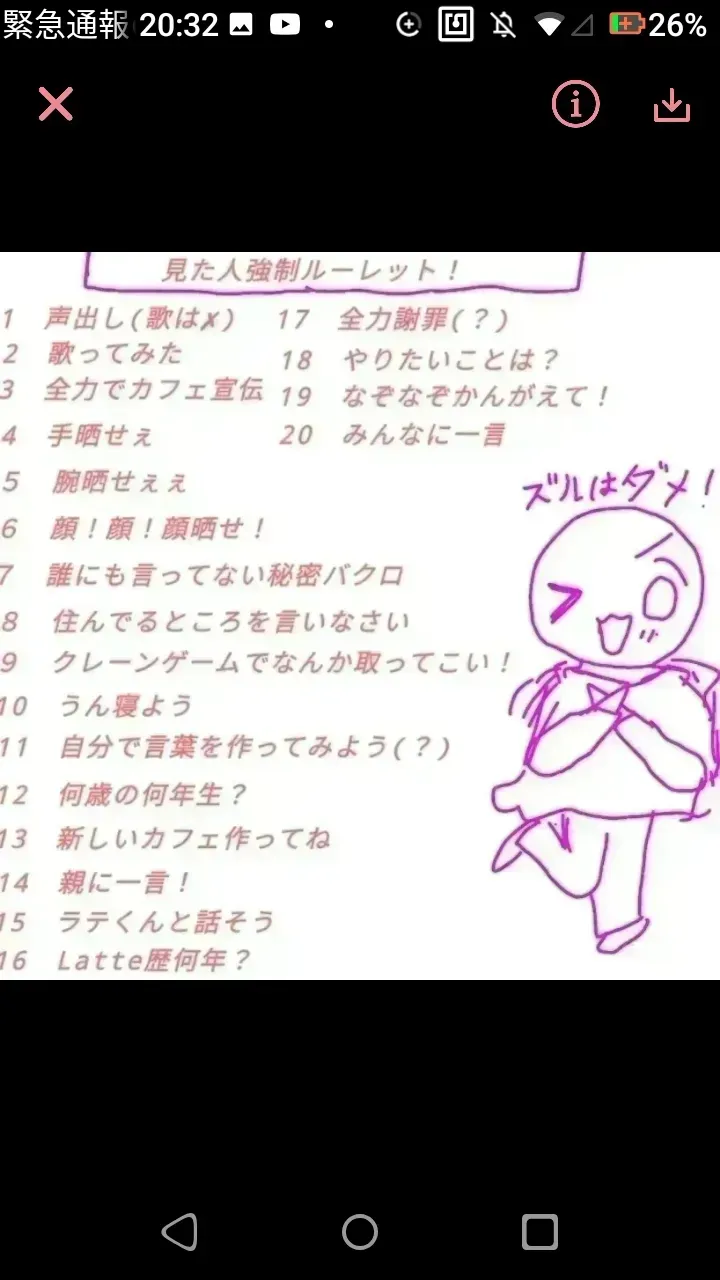 緊急通報 20:32 26%
見た人強制ルーレット！
1 声出し(歌は✗)
2 歌ってみた
3 全力でカフェ宣伝
4 手晒せぇ
5 腕晒せぇぇ
6 顔！顔！顔晒せ！
7 誰にも言ってない秘密バクロ
8 住んでるところを言いなさい
9 クレーンゲームでなんか取ってこい！
10 うん寝よう
11 自分で言葉を作ってみよう(？)
12 何歳の何年生？
13 新しいカフェ作ってね
14 親に一言！
15 ラテくんと話そう
16 Latte歴何年？
17 全力謝罪(？)
18 やりたいことは？
19 なぞなぞかんがえて！
20 みんなに一言
ズルはダメ！